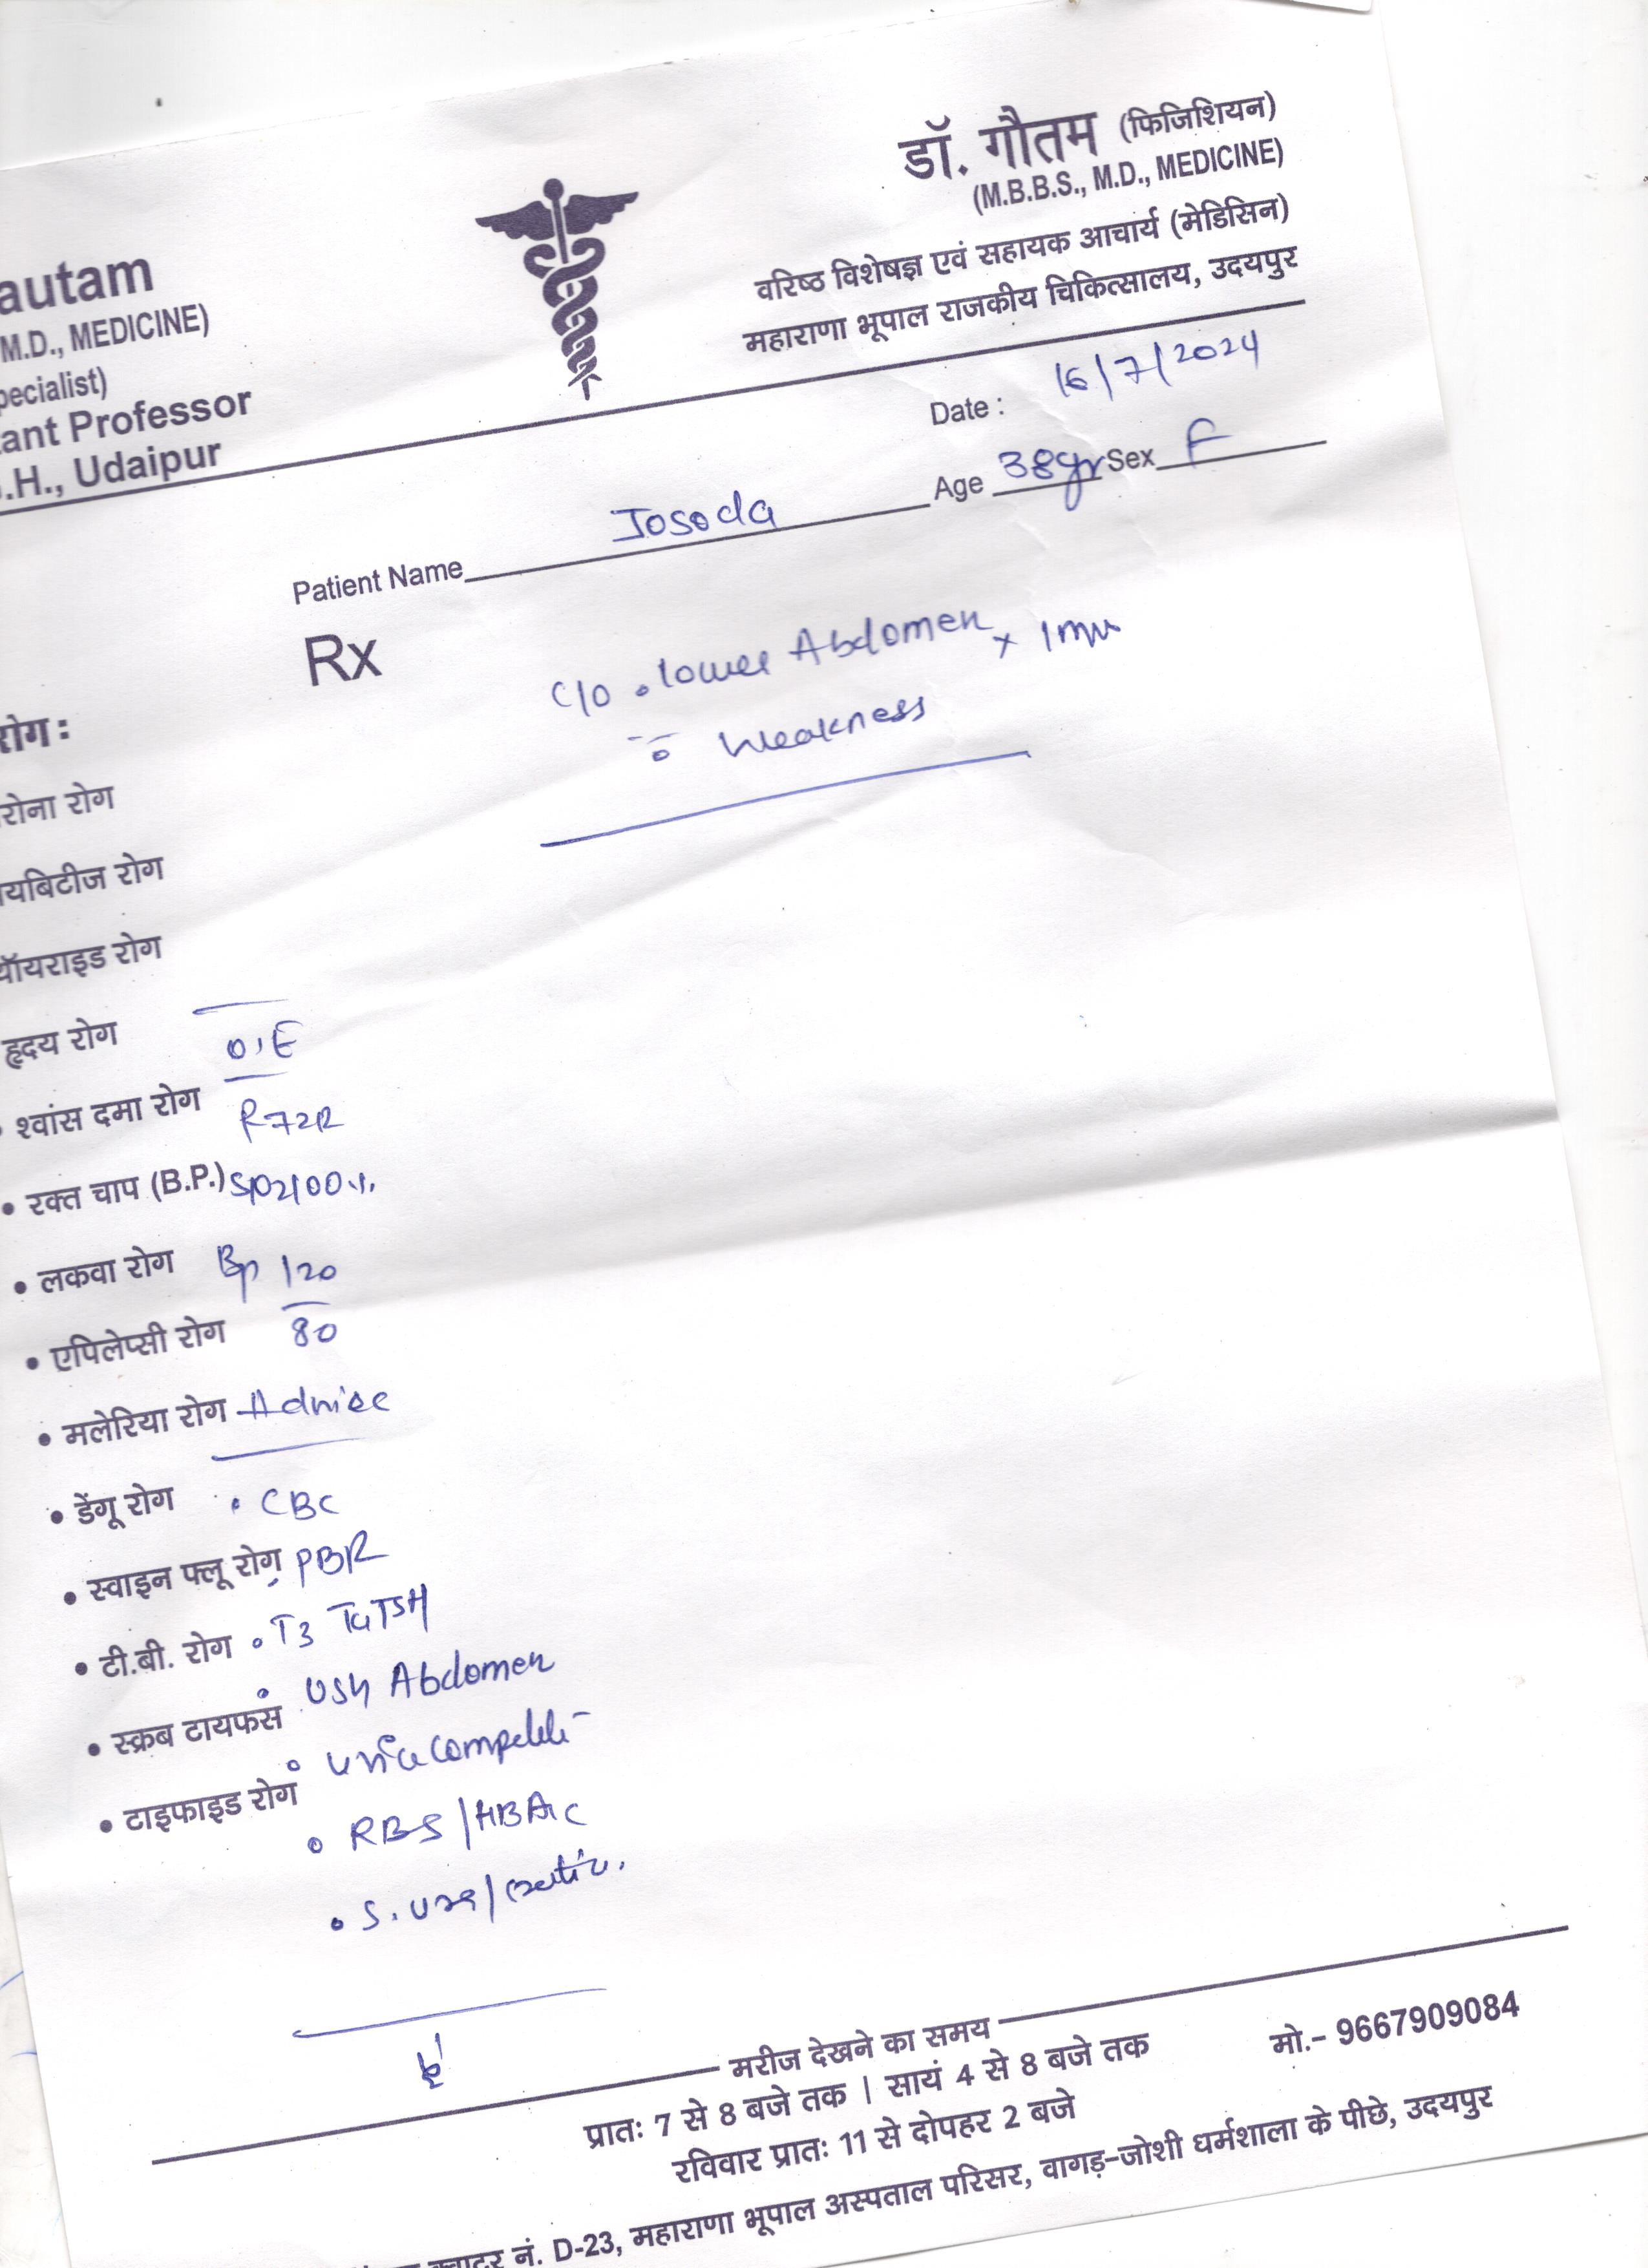 डॉ. गौतम (फिजिशियन)
(M.B.B.S., M.D., MEDICINE)
वरिष्ठ विशेषज्ञ एवं सहायक आचार्य (मेडिसिन)
महाराणा भूपाल राजकीय चिकित्सालय, उदयपुर
autam
M.D., MEDICINE)
pecialist)
ant Professor
.H., Udaipur
Date : 16/7/2024
Patient Name Josoda Age 38yr Sex F
Rx
C/O . lower Abdomen x 1
Weakness
रोग :
रोना रोग
यबिटीज रोग
थॉयराइड रोग
हृदय रोग
O/E
• श्वांस दमा रोग
• रक्त चाप (B.P.) SPO2 100%
• लकवा रोग Bp 120
• एपिलेप्सी रोग 80
• मलेरिया रोग Advice
• डेंगू रोग • CBC
• स्वाइन फ्लू रोग
• टी.बी. रोग • T3 T4 TSH
• स्क्रब टायफस • USG Abdomen
• टाइफाइड रोग • Urine
• RBS/HBA1C
• S.
मरीज देखने का समय
प्रातः 7 से 8 बजे तक | सायं 4 से 8 बजे तक
मो.- 9667909084
रविवार प्रातः 11 से दोपहर 2 बजे
नं. D-23, महाराणा भूपाल अस्पताल परिसर, वागड़-जोशी धर्मशाला के पीछे, उदयपुर